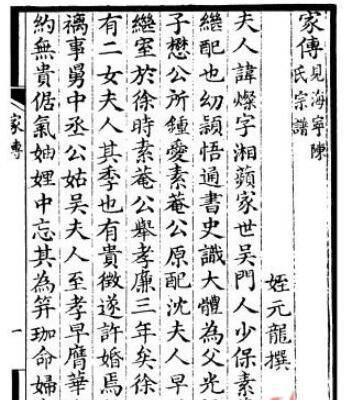 家傳
見海寧陳
氏宗譜
姪元龍撰
夫人諱燦字湘蘋家世吳門人少保素
繼配也幼穎悟通書史識大體為父光
子懋公所鍾愛素菴公原配沈夫人早
繼室於徐時素菴公舉孝廉三年矣徐
有二女夫人其季也有貴徵遂許婚焉
褵事舅中丞公姑吳夫人至孝早膺華
約無貴倨氣妯娌中忘其為笄珈命婦
家傳
一